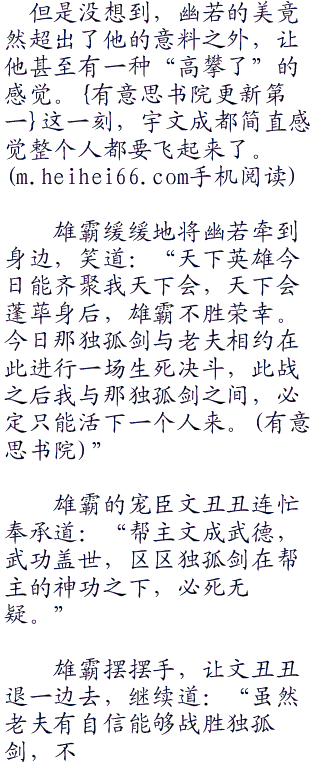 但是没想到，幽若的美竟
然超出了他的意料之外，让
他甚至有一种“高攀了”的
感觉。{有意思书院更新第
一}这一刻，宇文成都简直感
觉整个人都要飞起来了。
(m.heihei66.com手机阅读)
雄霸缓缓地将幽若牵到
身边，笑道：“天下英雄今
日能齐聚我天下会，天下会
蓬荜身后，雄霸不胜荣幸。
今日那独孤剑与老夫相约在
此进行一场生死决斗，此战
之后我与那独孤剑之间，必
定只能活下一个人来。(有意
思书院)”
雄霸的宠臣文丑丑连忙
奉承道：“帮主文成武德，
武功盖世，区区独孤剑在帮
主的神功之下，必死无
疑。”
雄霸摆摆手，让文丑丑
退一边去，继续道：“虽然
老夫有自信能够战胜独孤
剑，不